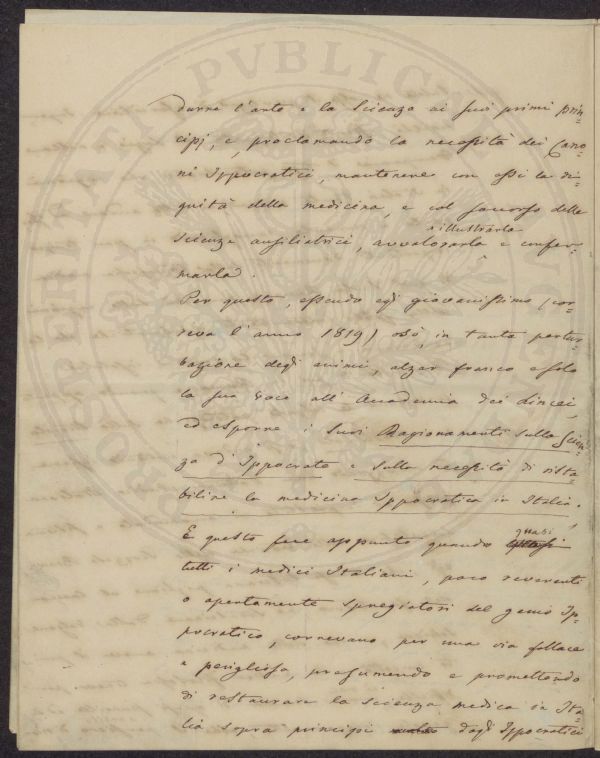 durre l'arte e la Scienza ai suoi primi prin=
cipj, e, proclamando la necessità dei Cano=
ni Ippocratici, mantenere con essi la di=
gnità della medicina, e col soccorso delle
e illustrarla
scienze ausiliatrici, avvalorarla e confer=
marla.
Per questo, essendo egli giovanissimo (cor=
reva l'anno 1819) osò, in tanta pertur=
bazione degli animi, alzar franco e solo
la sua voce all'Accademia dei Lincei,
ed esporre i suoi Ragionamenti sulla Scien=
za d'Ippocrate e sulla necessità di rista=
bilire la medicina Ippocratica in Italia.
E questo fece appunto quando quasi
tutti i medici Italiani, poco reverenti
o apertamente spregiatori del genio Ip=
pocratico, correvano per una via fallace
e perigliosa, presumendo e promettendo
di restaurare la scienza medica in Ita=
lia sopra principj dagl'Ippocratici